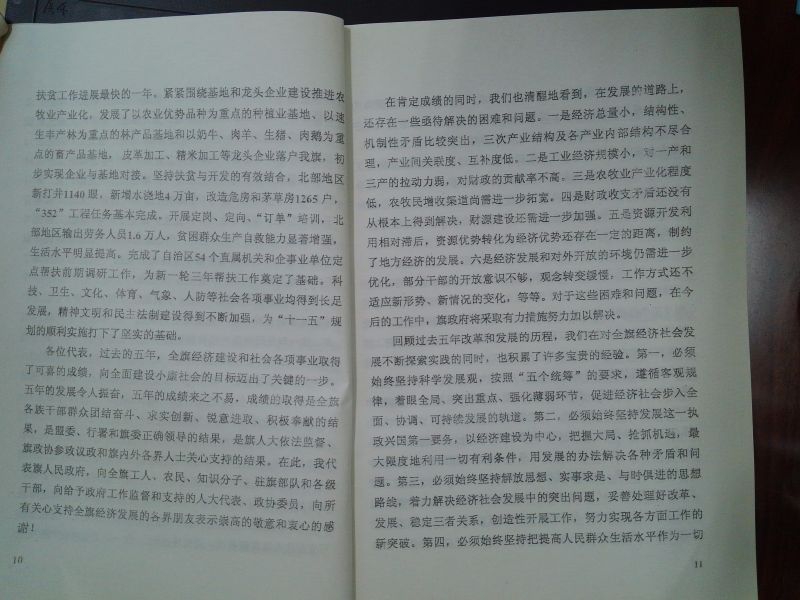 扶贫工作进展最快的一年。紧紧围绕基地和龙头企业建设推进农
牧业产业化，发展了以农业优势品种为重点的种植业基地、以速
生丰产林为重点的林产品基地和以奶牛、肉羊、生猪、肉鹅为重
点的畜产品基地，皮革加工、精米加工等龙头企业落户我旗，初
步实现企业与基地对接。坚持扶贫与开发的有效结合，北部地区
新打井1140 眼，新增水浇地4 万亩，改造危房和茅草房1265 户，
“352”工程任务基本完成。开展定岗、定向、“订单”培训，北
部地区输出劳务人员1.6 万人，贫困群众生产自救能力显著增强，
生活水平明显提高。完成了自治区54 个直属机关和企事业单位定
点帮扶前期调研工作，为新一轮三年帮扶工作奠定了基础。科
技、卫生、文化、体育、气象、人防等社会各项事业均得到长足
发展，精神文明和民主法制建设得到不断加强，为“十一五”规
划的顺利实施打下了坚实的基础。
各位代表，过去的五年，全旗经济建设和社会各项事业取得
了可喜的成绩，向全面建设小康社会的目标迈出了关键的一步。
五年的发展令人振奋，五年的成绩来之不易，成绩的取得是全旗
各族干部群众团结奋斗、求实创新、锐意进取、积极奉献的结
果，是盟委、行署和旗委正确领导的结果，是旗人大依法监督、
旗政协参政议政和旗内外各界人士关心支持的结果。在此，我代
表旗人民政府，向全旗工人、农民、知识分子、驻旗部队和各级
干部，向给予政府工作监督和支持的人大代表、政协委员，向所
有关心支持全旗经济发展的各界朋友表示崇高的敬意和衷心的感
谢！
10
在肯定成绩的同时，我们也清醒地看到，在发展的道路上，
还存在一些亟待解决的困难和问题。一是经济总量小，结构性、
机制性矛盾比较突出，三次产业结构及各产业内部结构不尽合
理，产业间关联度、互补度低。二是工业经济规模小，对一产和
三产的拉动力弱，对财政的贡献率不高。三是农牧业产业化程度
低，农牧民增收渠道尚需进一步拓宽。四是财政收支矛盾还没有
从根本上得到解决，财源建设还需进一步加强。五是资源开发利
用相对滞后，资源优势转化为经济优势还存在一定的距离，制约
了地方经济的发展。六是经济发展和对外开放的环境仍需进一步
优化，部分干部的开放意识不够，观念转变缓慢，工作方式还不
适应新形势、新情况的变化，等等。对于这些困难和问题，在今
后的工作中，旗政府将采取有力措施努力加以解决。
回顾过去五年改革和发展的历程，我们在对全旗经济社会发
展不断探索实践的同时，也积累了许多宝贵的经验。第一，必须
始终坚持科学发展观，按照“五个统筹”的要求，遵循客观规
律，着眼全局、突出重点、强化薄弱环节，促进经济社会步入全
面、协调、可持续发展的轨道。第二，必须始终坚持发展这一执
政兴国第一要务，以经济建设为中心，把握大局、抢抓机遇，最
大限度地利用一切有利条件，用发展的办法解决各种矛盾和问
题。第三，必须始终坚持解放思想、实事求是、与时俱进的思想
路线，着力解决经济社会发展中的突出问题，妥善处理好改革、
发展、稳定三者关系，创造性开展工作，努力实现各方面工作的
新突破。第四，必须始终坚持把提高人民群众生活水平作为一切
11